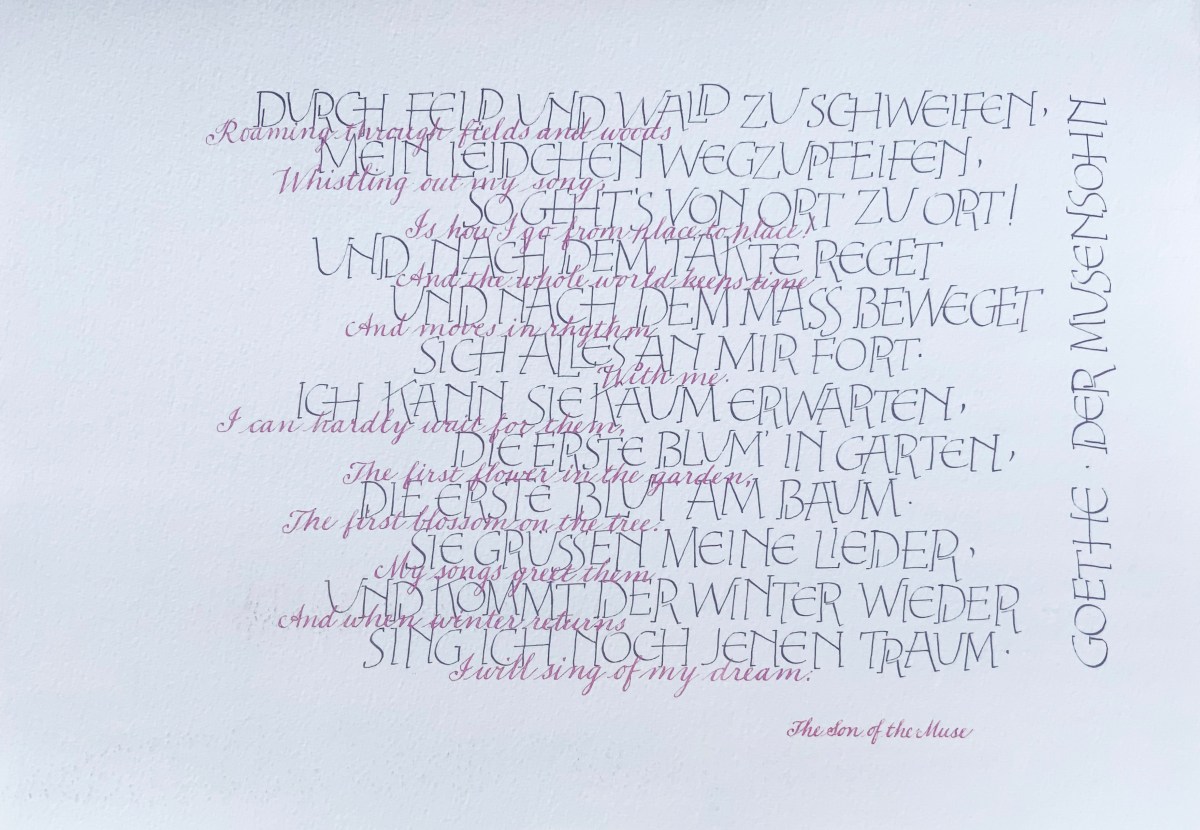 DURCH FELD UND WALD ZU SCHWEIFEN,
Roaming through fields and woods
MEIN LEIDCHEN WEGZUPFEIFEN,
Whistling out my song,
SO GEHT'S VON ORT ZU ORT!
Is how I go from place to place!
UND NACH DEM TAKTE REGET
And the whole world keeps time
UND NACH DEM MASS BEWEGET
And moves in rhythm
SICH ALLES AN MIR FORT.
With me.
ICH KANN SIE KAUM ERWARTEN,
I can hardly wait for them,
DIE ERSTE BLUM' IN GARTEN,
The first flower in the garden,
DIE ERSTE BLUT AM BAUM.
The first blossom on the tree.
SIE GRUSSEN MEINE LIEDER,
My songs greet them,
UND KOMMT DER WINTER WIEDER
And when winter returns
SING ICH NOCH JENEN TRAUM.
I will sing of my dream.
GOETHE · DER MUSENSOHN
The Son of the Muse